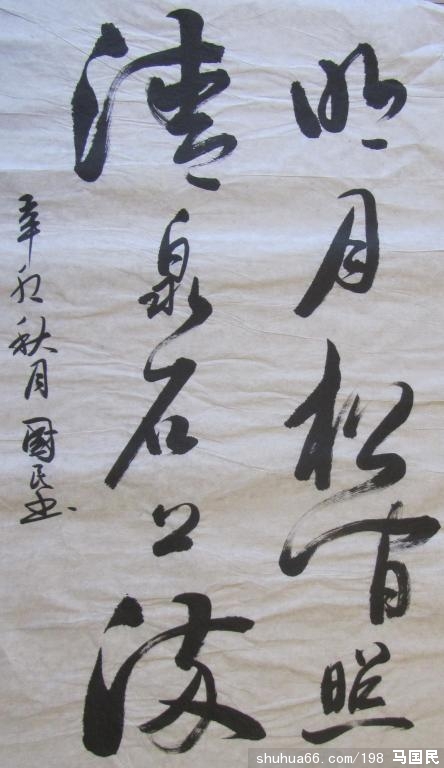 明月松间照
清泉石上流
辛卯秋月 国民书
shuhua66.com/198 马国民